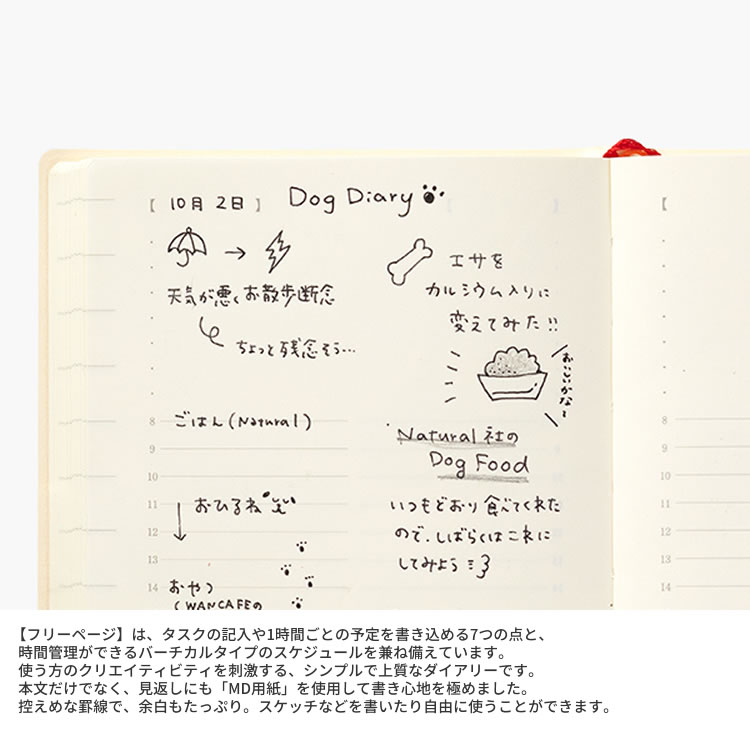 【 10月 2日 】 Dog Diary
→
天気が悪くお散歩断念
ちょっと残念そう…
8 ごはん(Natural)
9
10
11 おひるね
12
13
14 おやつ
(WANCAFEの
エサを
カルシウム入りに
変えてみた!!
おいしいかな〜
Natural社の
Dog Food
いつもどおり食べてくれた
ので、しばらくはこれに
してみよう
8
9
10
11
12
13
14
【フリーページ】は、タスクの記入や1時間ごとの予定を書き込める7つの点と、
時間管理ができるバーチカルタイプのスケジュールを兼ね備えています。
使う方のクリエイティビティを刺激する、シンプルで上質なダイアリーです。
本文だけでなく、見返しにも「MD用紙」を使用して書き心地を極めました。
控えめな罫線で、余白もたっぷり。スケッチなどを書いたり自由に使うことができます。